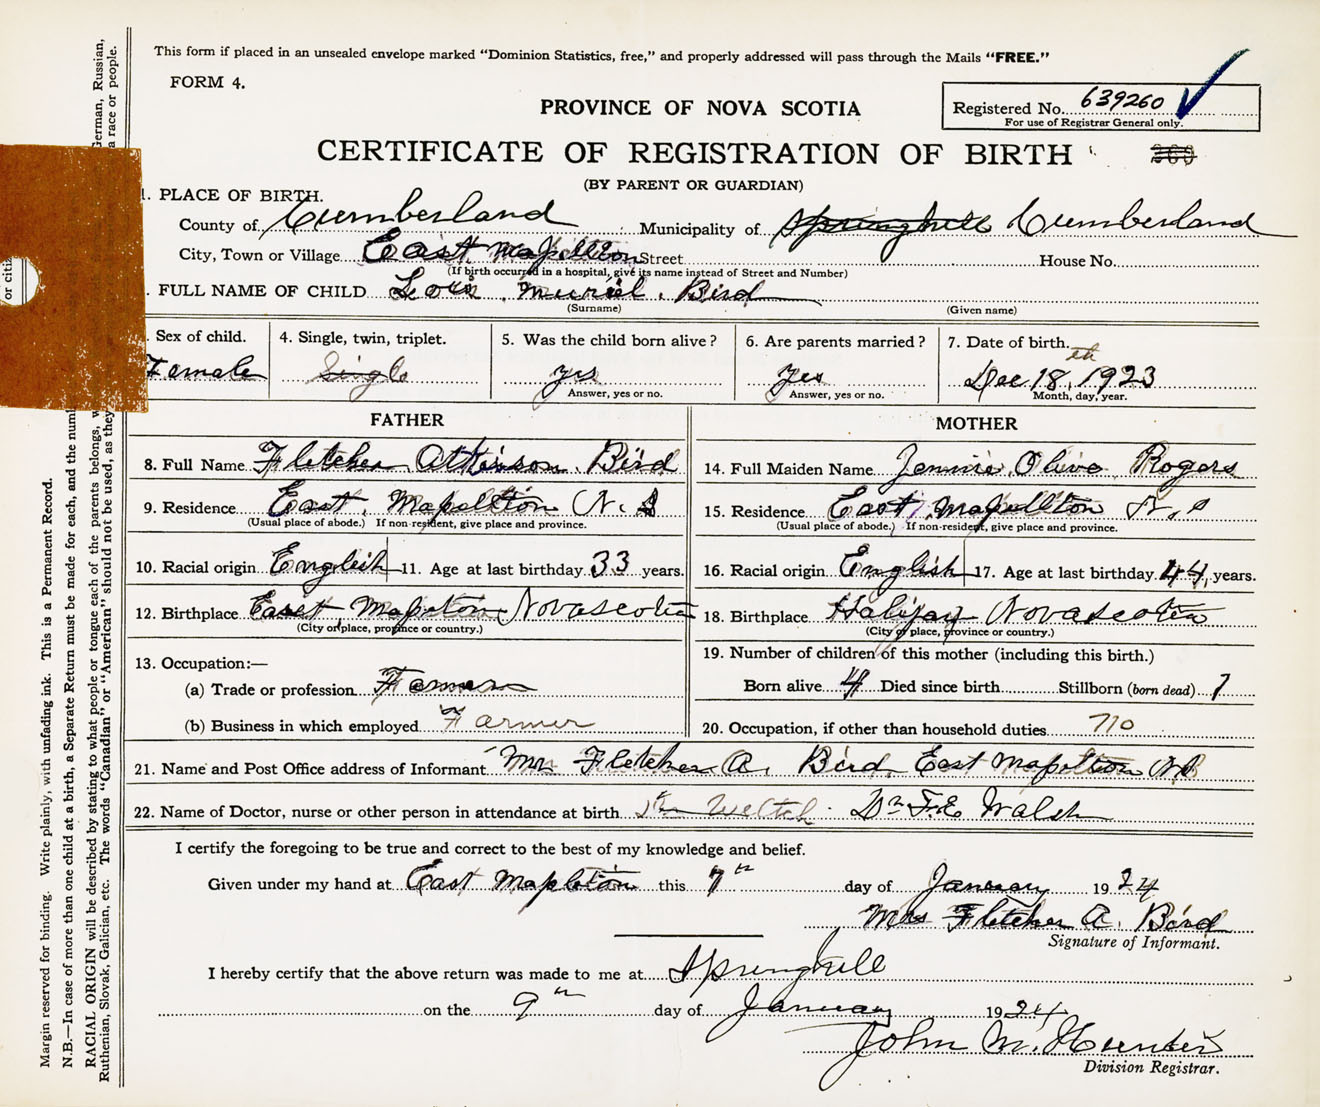 This form if placed in an unsealed envelope marked "Dominion Statistics, free," and properly addressed will pass through the Mails "FREE."
FORM 4.
PROVINCE OF NOVA SCOTIA
Registered No. 639260
For use of Registrar General only.
CERTIFICATE OF REGISTRATION OF BIRTH
(BY PARENT OR GUARDIAN)
1. PLACE OF BIRTH.
County of Cumberland Municipality of Springhill Cumberland
City, Town or Village East Mapleton Street House No.
(If birth occurred in a hospital, give its name instead of Street and Number)
FULL NAME OF CHILD Lois Muriel Bird
(Surname) (Given name)
Sex of child. 4. Single, twin, triplet. 5. Was the child born alive? 6. Are parents married? 7. Date of birth.
Female Single yes yes Dec 18th, 1923
Answer, yes or no. Answer, yes or no. Month, day, year.
FATHER MOTHER
8. Full Name Fletcher Atkinson Bird 14. Full Maiden Name Jennie Olive Rogers
9. Residence East Mapleton N.S 15. Residence East Mapleton N.S
(Usual place of abode.) If non-resident, give place and province. (Usual place of abode.) If non-resident, give place and province.
10. Racial origin English 11. Age at last birthday 33 years. 16. Racial origin English 17. Age at last birthday 44, years.
12. Birthplace East Mapleton Novascotia 18. Birthplace Halifax Novascotia
(City or place, province or country.) (City or place, province or country.)
13. Occupation:— 19. Number of children of this mother (including this birth.)
(a) Trade or profession Farmer Born alive 4 Died since birth Stillborn (born dead) 1
(b) Business in which employed Farmer 20. Occupation, if other than household duties no
21. Name and Post Office address of Informant Mrs Fletcher A. Bird East Mapleton NS
22. Name of Doctor, nurse or other person in attendance at birth Dr Weltch Dr F.E Walsh
I certify the foregoing to be true and correct to the best of my knowledge and belief.
Given under my hand at East Mapleton this 7th day of January 1924
Mrs Fletcher A. Bird
Signature of Informant.
I hereby certify that the above return was made to me at Springhill
on the 9th day of January 1924
John M. Hunter
Division Registrar.
Margin reserved for binding. Write plainly, with unfading ink. This is a Permanent Record.
N.B.—In case of more than one child at a birth, a Separate Return must be made for each, and the num
RACIAL ORIGIN will be described by stating to what people or tongue each of the parents belongs, German, Russian,
Ruthenian, Slovak, Galician, etc. The words "Canadian" or "American" should not be used, as they a race or people.
or citiz